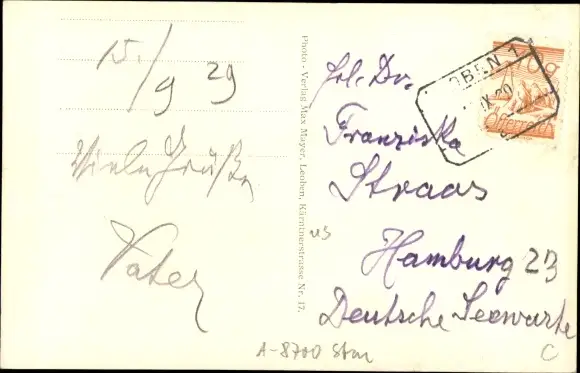 15./9 29
Viele Grüße
Vater
Photo - Verlag Max Mayer, Leoben, Kärntnerstrasse Nr. 17.
Frl. Dr.
Franziska
Straas
Hamburg 23
Deutsche Seewarte
OBEN 1
IX 29
Österreich
A-8700
C